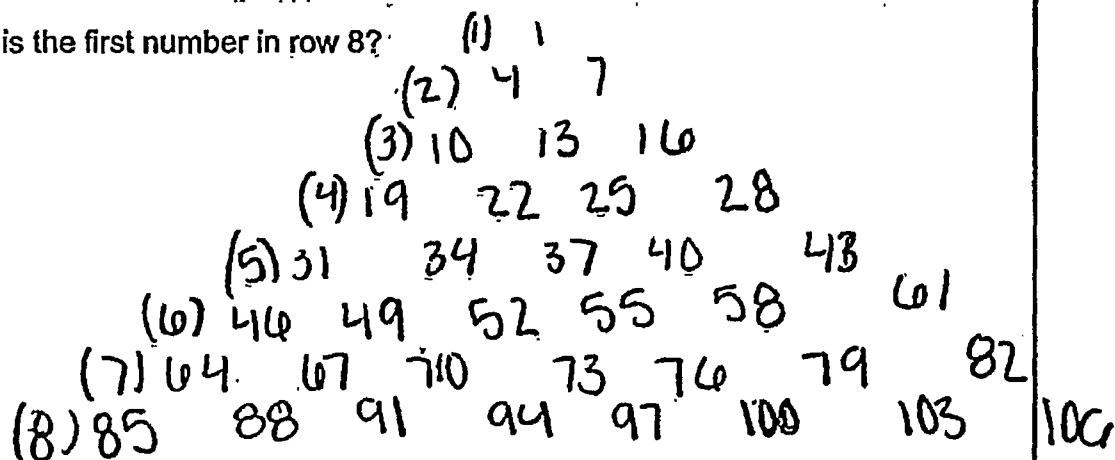 is the first number in row 8? (1) 1
(2) 4 7
(3) 10 13 16
(4) 19 22 25 28
(5) 31 34 37 40 43
(6) 46 49 52 55 58 61
(7) 64 67 70 73 76 79 82
(8) 85 88 91 94 97 100 103 106